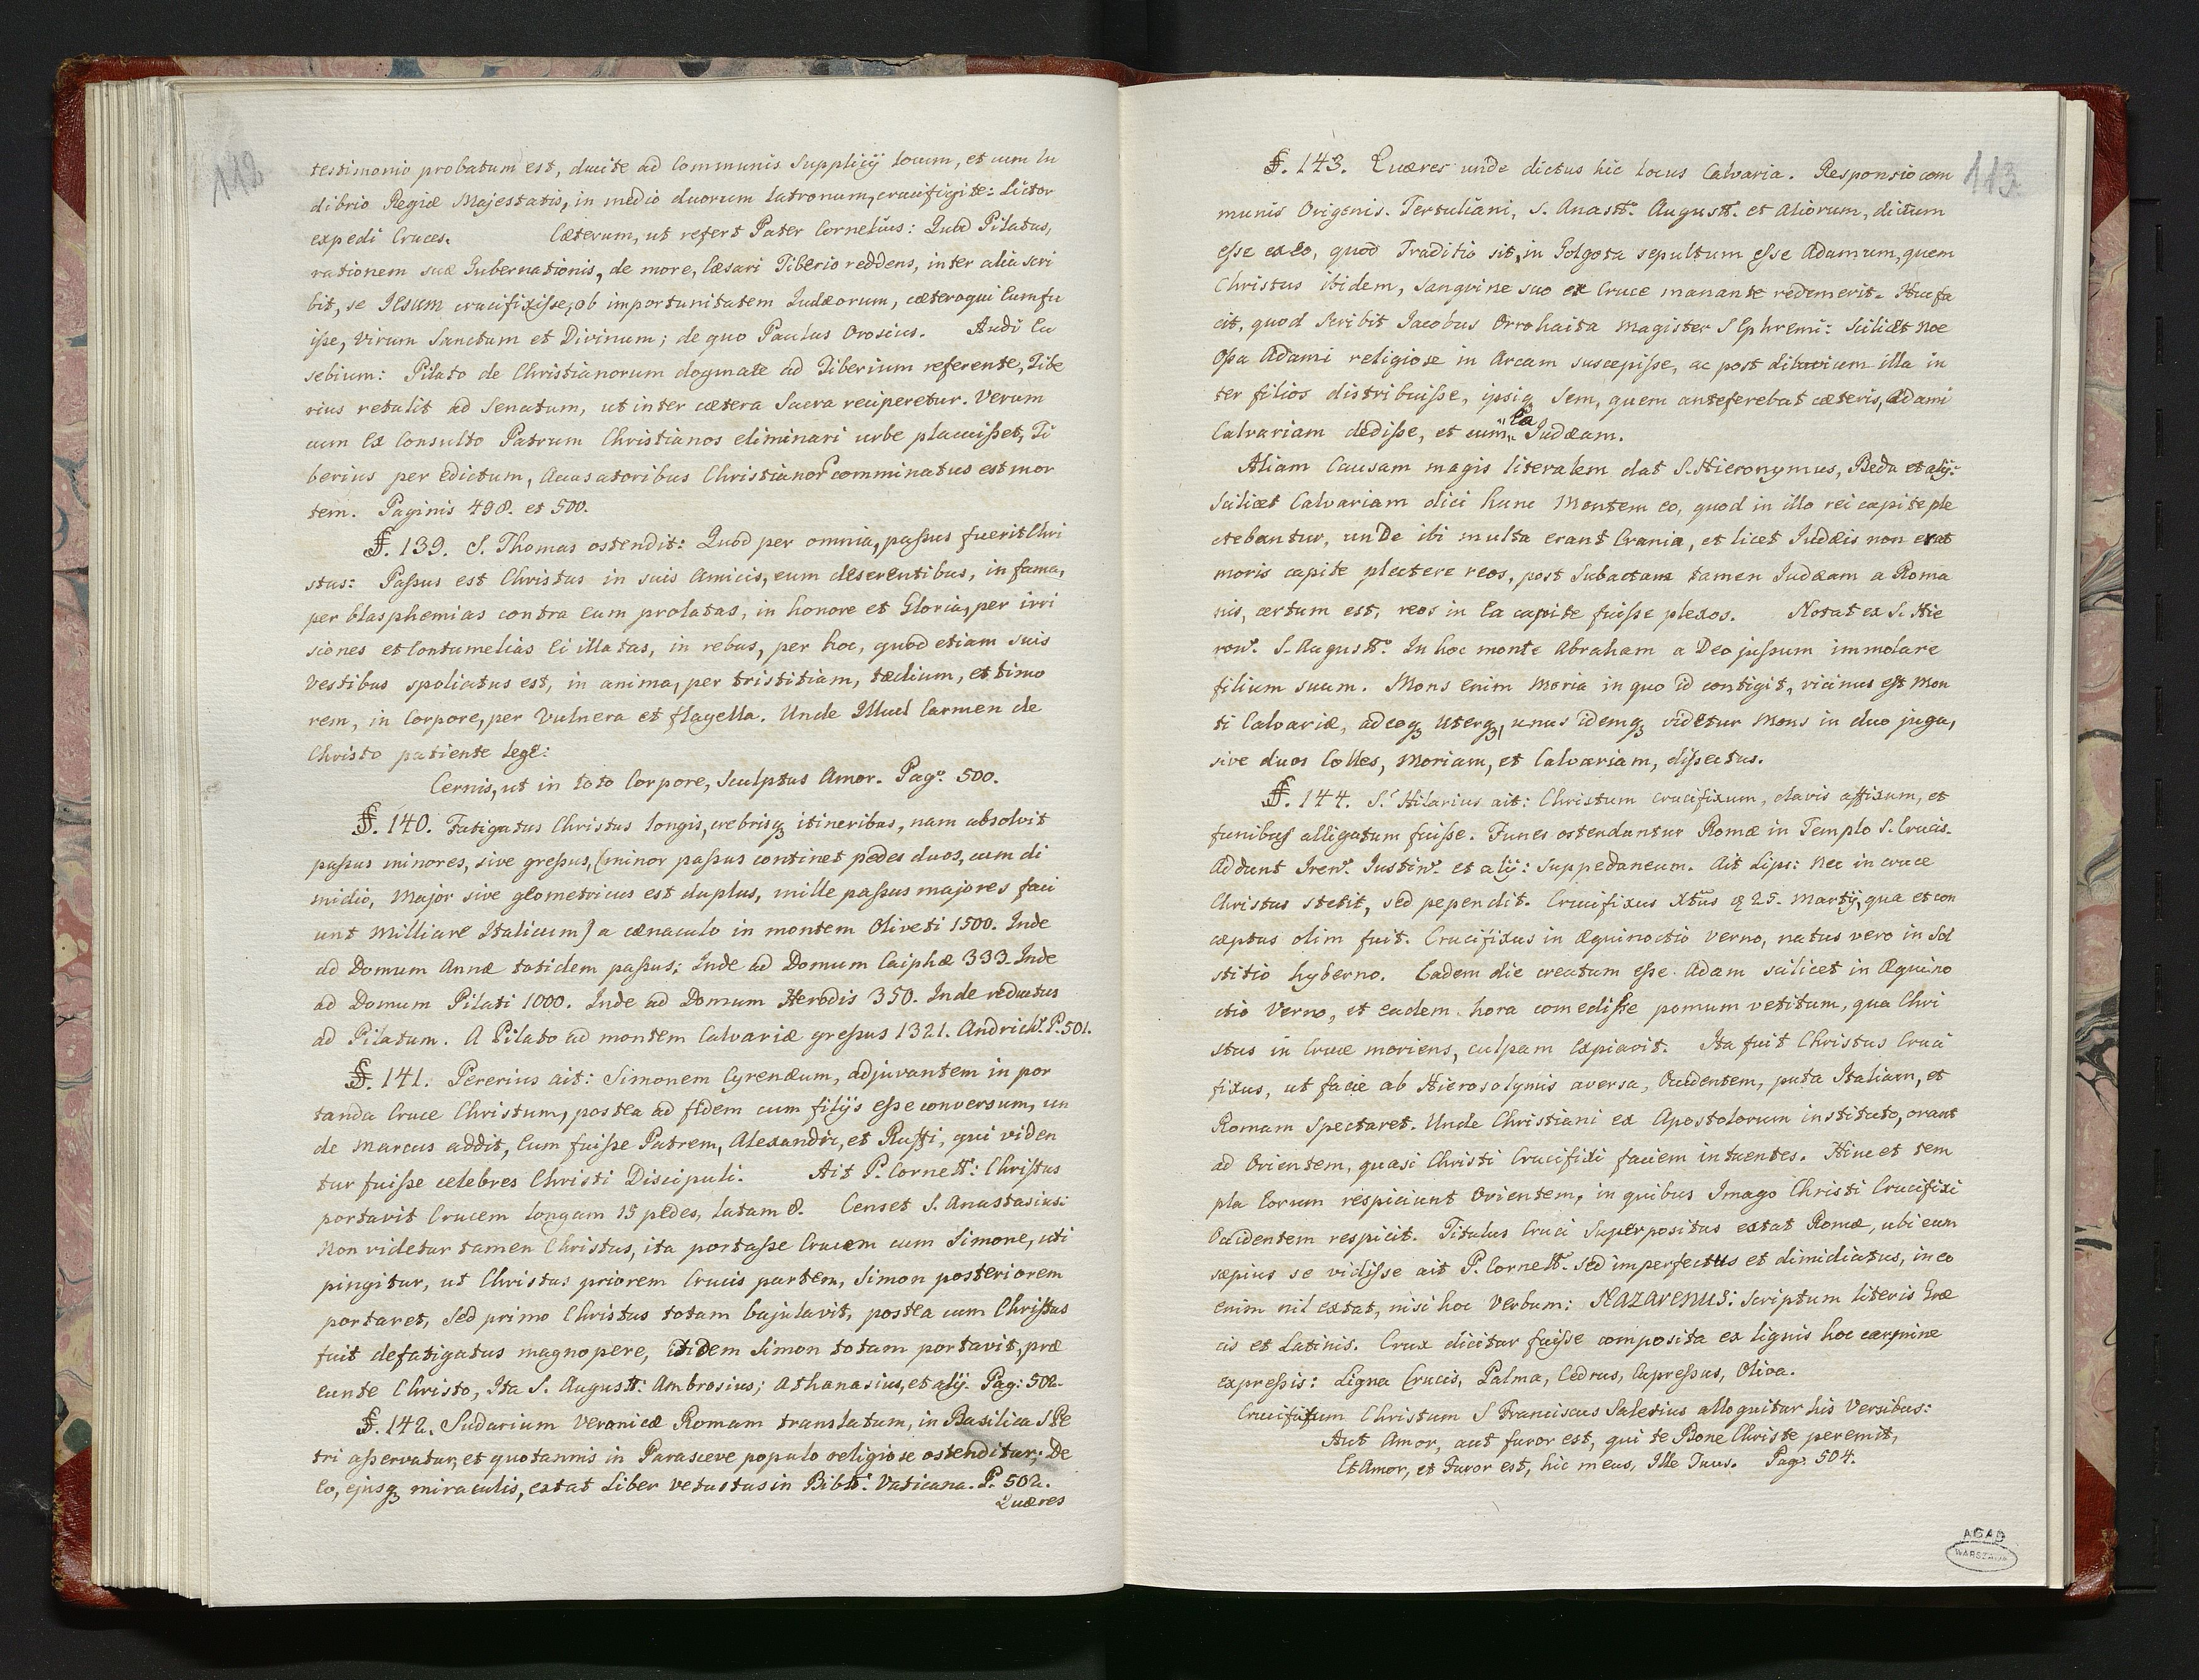 112
testimonio probatum est, ducite ad Communis Supplicij locum, et cum lu
dibrio Regiæ Majestatis, in medio duorum latronum, crucifigite: Lictor
expedi Cruces. Cæterum, ut refert Pater Cornelius: Quod Pilatus,
rationem suæ Gubernationis, de more, Cæsari Tiberio reddens, inter alia scri
bit, se Jesum crucifixisse, ob importunitatem Judæorum, cæteroqui Eum fu
isse, Virum Sanctum et Divinum; de quo Paulus Orosius. Audi Eu
sebium: Pilato de Christianorum dogmate ad Tiberium referente, Tibe
rius retulit ad Senatum, ut inter cætera Sacra reciperetur. Verum
cum Ex Consulto Patrum Christianos eliminari urbe placuisset, Ti
berius per edictum, Accusatoribus Christianor comminatus est mor
tem. Paginis 498. et 500.
§. 139. S. Thomas ostendit: Quod per omnia, passus fuerit Chri
stus: Passus est Christus in suis Amicis, eum deserentibus, in fama,
per blasphemias contra Eum prolatas, in honore et Gloria, per irri
siones et Contumelias Ei illatas, in rebus, per hoc, quod etiam suis
Vestibus spoliatus est, in anima, per tristitiam, tædium, et timo
rem, in Corpore, per Vulnera et flagella. Unde Illud Carmen de
Christo patiente lege:
Cernis, ut in toto Corpore, Sculptus Amor. Pag. 500.
§. 140. Fatigatus Christus longis, crebrisq itineribus, nam absolvit
passus minores, sive gressus, (minor passus continet pedes duos, cum di
midio, Major sive geometricus est duplus, mille passus majores faci
unt Milliare Italicum) a cænaculo in montem Oliveti 1500. Inde
ad Domum Annæ totidem passus; Inde ad Domum Caiphæ 333. Inde
ad Domum Pilati 1000. Inde ad Domum Herodis 350. Inde reductus
ad Pilatum. A Pilato ad montem Calvariæ gressus 1321. Andrich. P. 501.
§. 141. Pererius ait: Simonem Cyrenæum, adjuvantem in por
tanda Cruce Christum, postea ad fidem cum filijs esse conversum, un
de Marcus addit, Eum fuisse Patrem, Alexandri, et Ruffi, qui viden
tur fuisse celebres Christi Discipuli. Ait P. Cornell: Christus
portavit Crucem longam 15 pedes, latam 8. Censet S. Anastasius:
Non videtur tamen Christus, ita portasse Crucem cum Simone, uti
pingitur, ut Christus priorem Crucis partem, Simon posteriorem
portaret, Sed primo Christus totam bajulavit, postea cum Christus
fuit defatigatus magnopere, itidem Simon totam portavit, præ
eunte Christo, Ita S. Augustt: Ambrosius; Athanasius, et alij. Pag: 502.
§. 142. Sudarium Veronicæ Romam translatum, in Basilica S Pe
tri asservatur, et quotannis in Parasceve populo religiose ostenditur; De
Eo, ejusq miraculis, extat Liber vetustus in Biblt: Vaticana. P. 502.
Quæres
113
§. 143. Quæres unde dictus hic locus Calvaria. Responsio com
munis Origenis. Tertuliani, S. Anastt. Augustt. et Aliorum, dictum
esse ex Eo, quod Traditio sit, in Golgota sepultum esse Adamum, quem
Christus ibidem, Sangvine suo ex Cruce manante redemerit. Huc fa
cit, quod Scribit Jacobus Orrohaita Magister S Ephremi: Scilicet Noe
Ossa Adami religiose in Arcam suscepisse, ac post diluvium illa in
ter filios distribuisse, ipsiq Sem, quem anteferebat cæteris, Adami
Calvariam dedisse, et cum Ea Judæam.
Aliam Causam magis literalem dat S. Hieronymus, Beda et alij:
Scilicet Calvariam dici hunc Montem eo, quod in illo rei capite ple
ctebantur, unde ibi multa erant Crania, et licet Judæis non erat
moris capite plectere reos, post Subactam tamen Judæam a Roma
nis, certum est, reos in Ea capite fuisse plexos. Notat ex S. Hie
ron. S. Augustt. In hoc monte Abraham a Deo jussum immolare
filium suum. Mons enim Moria in quo id contigit, vicinus est Mon
ti Calvariæ, adeoq Uterq, unus idemq videtur Mons in duo juga,
sive duos Colles, Moriam, et Calvariam, dissectus.
§. 144. S. Hilarius ait: Christum crucifixum, clavis affixum, et
funibus alligatum fuisse. Funes ostenduntur Romæ in Templo S. Crucis.
Addunt Iren. Iustin. et alij: Suppedaneum. Ait Lips: Nec in cruce
Christus stetit, sed pependit. Crucifixus Xtus 25. Martij, qua et con
ceptus olim fuit. Crucifixus in Æquinoctio Verno, natus vero in Sol
stitio hyberno. Eadem die creatum esse Adam scilicet in Æquino
ctio Verno, et eadem hora comedisse pomum vetitum, qua Chri
stus in Cruce moriens, culpam Expiavit. Ita fuit Christus Cruci
fixus, ut facie ab Hierosolymis aversa, Occidentem, puta Italiam, et
Romam Spectaret. Unde Christiani ex Apostolorum instituto, orant
ad Orientem, quasi Christi Crucifixi faciem intuentes. Hinc et tem
pla Eorum respiciunt Orientem, in quibus Imago Christi Crucifixi
Occidentem respicit. Titulus Cruci Superpositus extat Romæ, ubi eum
sæpius se vidisse ait P. Cornell. Sed imperfectus et dimidiatus, in eo
enim nil extat, nisi hoc Verbum: NAZARENUS: scriptum literis Græ
cis et Latinis. Crux dicitur fuisse composita ex lignis hoc carmine
expressis: Ligna Crucis, Palma, Cedrus, Cupressus, Oliva.
Crucifixum Christum S Franciscus Salesius alloquitur his Versibus:
Aut Amor, aut furor est, qui te Bone Christe peremit,
Et Amor, et Furor est, hic meus, Ille Tuus. Pag. 504.
AGAD
WARSZAWA